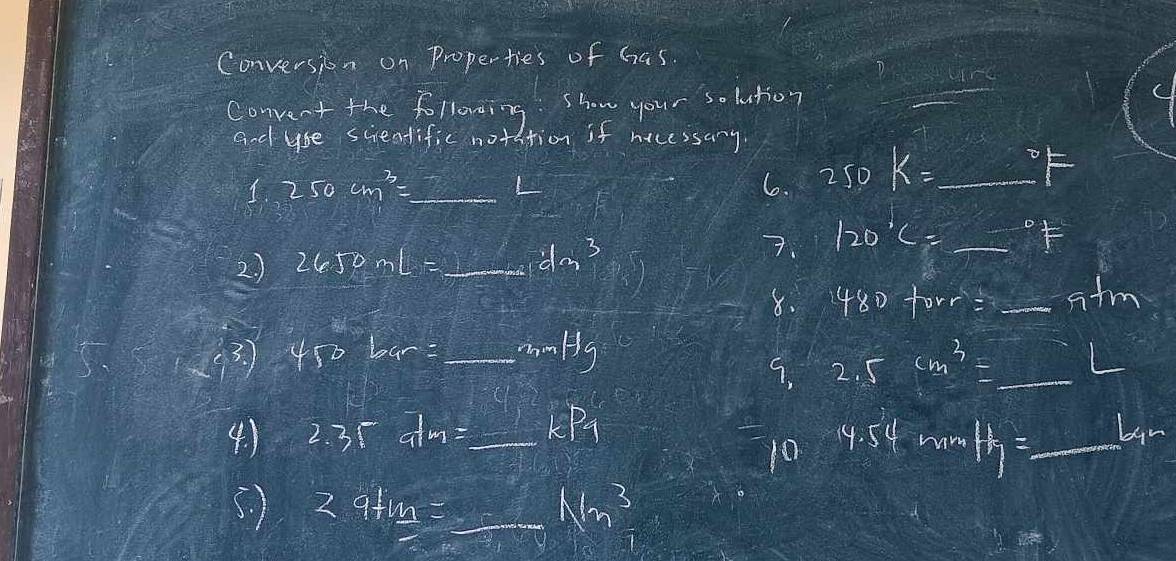 Conversion on Properties of Gas.
Convert the following: Show your solution
and use scientific notation if necessary.
1. 250 cm³ = ____ L
2.) 2650 mL = ____ dm³
3.) 450 bar = ____ mmHg
4.) 2.35 atm = ____ kPa
5.) 2 atm = ____ Nm³
6. 250 K = ____ °F
7. 120°C = ____ °F
8. 480 torr = ____ atm
9. 2.5 cm³ = ____ L
10 14.54 mmHg = ____ bar